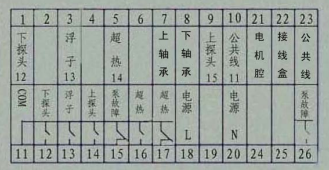 1 2 3 4 5 6 7 8 9 10 21 22 23
下探头 12
浮子 13
超热 14
上轴承
下轴承
上探头 15
公共线 11
电机腔
接线盒
公共线
COM
下探头
浮子
上探头
泵故障
超热
超热
电源 L
电源 N
泵故障
11 12 13 14 15 16 17 18 19 20 24 25 26